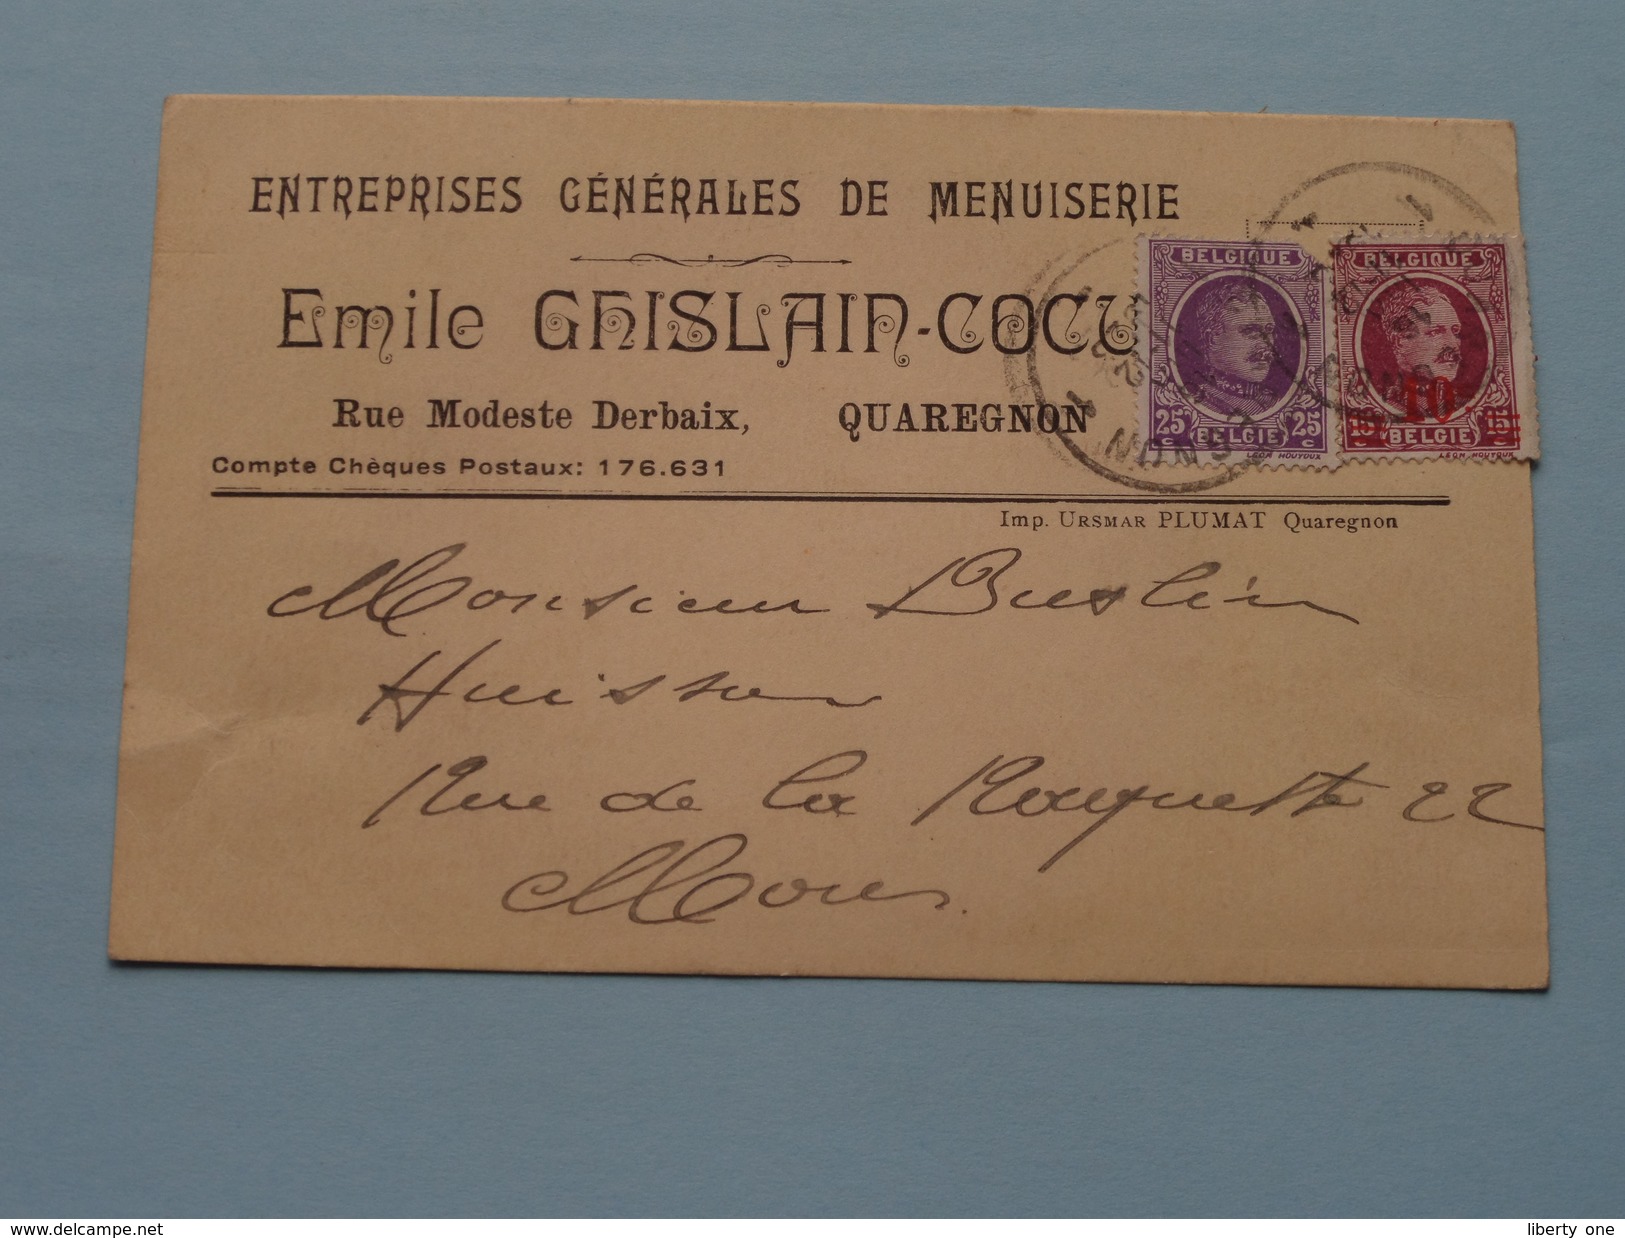 ENTREPRISES GÉNÉRALES DE MENUISERIE
Emile GHISLAIN-COCU
Rue Modeste Derbaix, QUAREGNON
Compte Chèques Postaux: 176.631
Imp. URSMAR PLUMAT Quaregnon
BELGIQUE
25c 25c
BELGIE
LEON HOUYOUX
BELGIQUE
10
15c 15c
BELGIE
LEON HOUYOUX
Monsieur Buslin
Huissier
Rue de la Roquette 22
Mons.
www.delcampe.net
liberty one